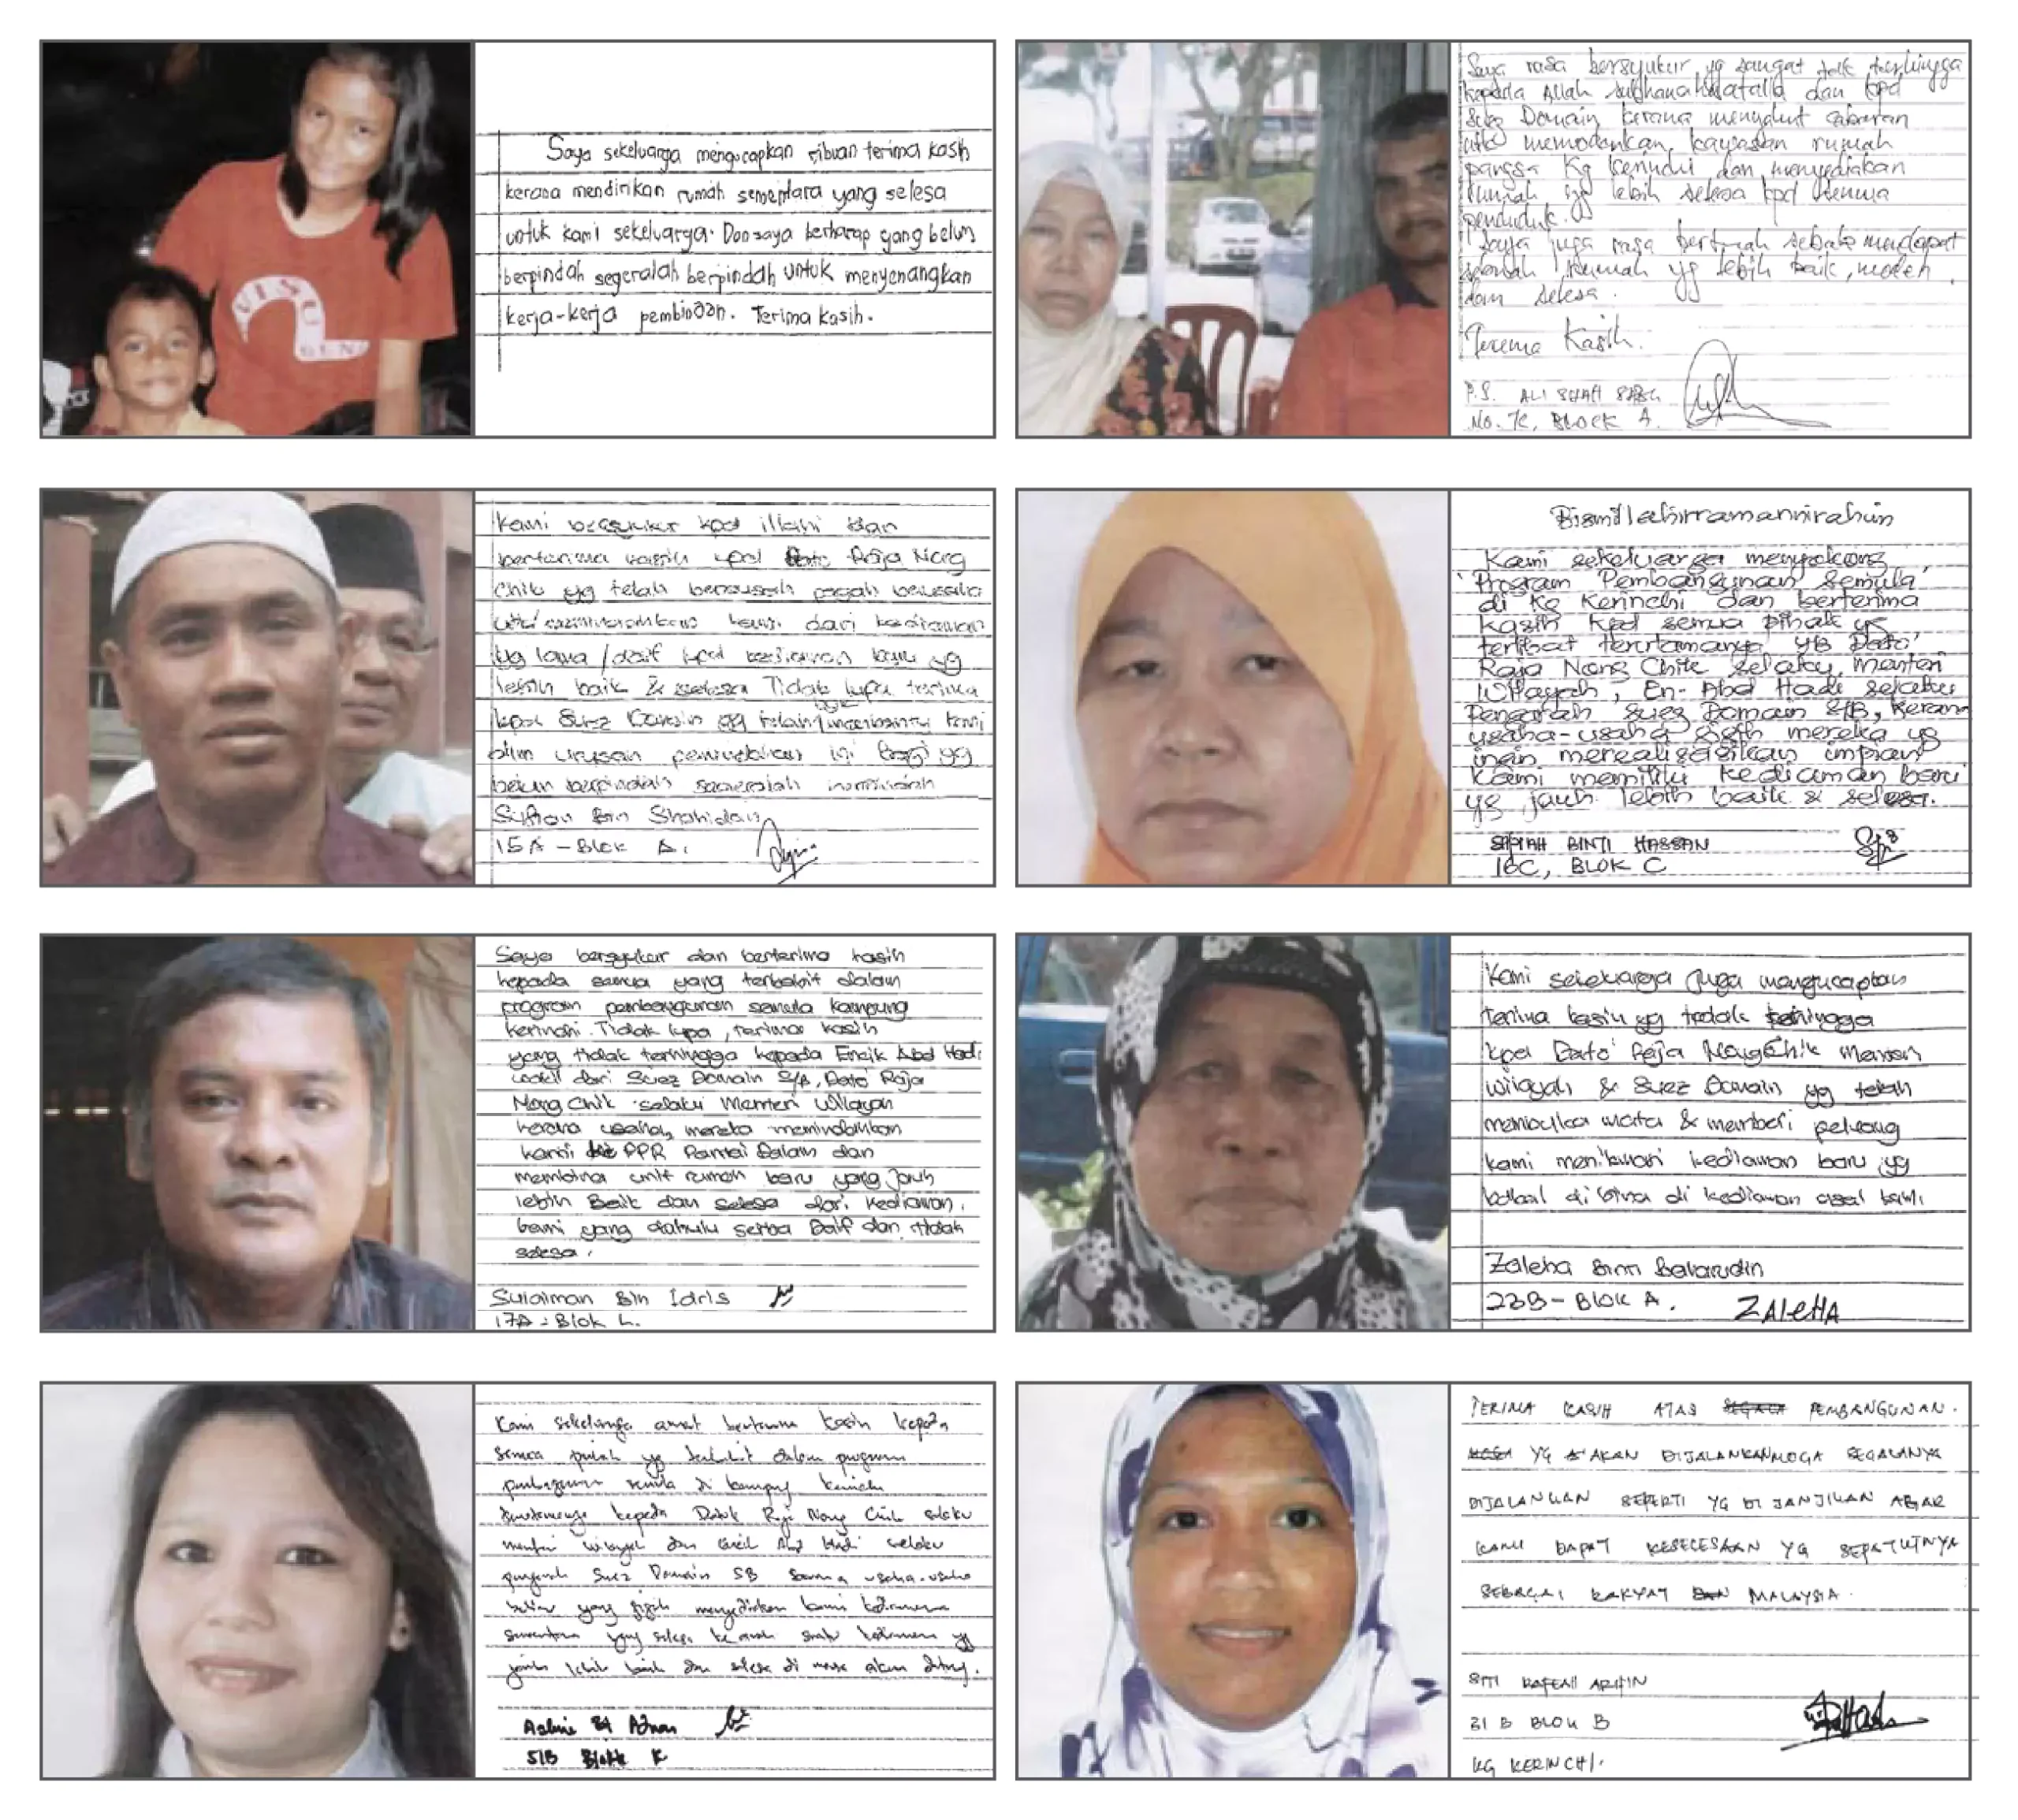 Saya sekeluarga mengucapkan ribuan terima kasih
kerana mendirikan rumah sementara yang selesa
untuk kami sekeluarga. Dan saya berharap yang belum
berpindah segeralah berpindah untuk menyenangkan
kerja-kerja pembinaan. Terima kasih.
Saya rasa bersyukur yg sangat tak terhingga
kepada Allah dan kpd
Suez Domain kerana menyahut cabaran
utk memodenkan kawasan rumah
pangsa Kg Kerinchi dan menyediakan
rumah yg lebih selesa kpd semua
penduduk.
Saya juga rasa bertuah sebab mendapat
sebuah rumah yg lebih baik, moden
dan selesa.
Terima Kasih.
P.S. ALI SHAH
No. 7C, BLOCK A.
Kami bersyukur kpd illahi dan
berterima kasih kpd Dato Raja Nong
Chik yg telah bersusah payah berusaha
utk memindahkan kami dari kediaman
yg lama/daif kpd kediaman baru yg
lebih baik & selesa Tidak lupa terima
kpd Suez Domain yg telah kami
dlm urusan pemindahan ini Bagi yg
belum berpindah segeralah
Sufian Bin Shahidan
15A - Blok A.
Bismillahirramannirahim
Kami sekeluarga menyokong
Program Pembangunan Semula
di Kg Kerinchi dan berterima
kasih kpd semua pihak yg
terlibat terutamanya YB Dato'
Raja Nong Chik selaku Menteri
Wilayah, En. Abd Hadi selaku
Pengarah Suez Domain S/B, kerana
usaha-usaha gigih mereka yg
ingin merealisasikan impian
kami memiliki kediaman baru
yg jauh lebih baik & selesa.
SAPIAH BINTI HASSAN
16C, BLOK C
Saya bersyukur dan berterima kasih
kepada semua yang terbabit dalam
program pembangunan semula Kampung
Kerinchi. Tidak lupa, terima kasih
yang tidak terhingga kepada Encik Abd Hadi
wakil dari Suez Domain S/B, Dato' Raja
Nong Chik selaku Menteri Wilayah
kerana usaha mereka memindahkan
kami ke PPR Pantai Dalam dan
membina unit rumah baru yang jauh
lebih Baik dan selesa dari kediaman
kami yang dahulu serba Daif dan tidak
selesa.
Sulaiman Bin Idris
17A - Blok L.
Kami sekeluarga juga mengucapkan
terima kasih yg tidak tehingga
kpd Dato' Raja Nong Chik Menteri
Wilayah & Suez Domain yg telah
membuka mata & memberi peluang
kami menikmati kediaman baru yg
bakal di bina di kediaman asal kami
Zaleha Binti Baharudin
23B - Blok A. ZALEHA
Kami sekeluarga amat berterima kasih kepada
semua pihak yg terbabit dalam program
pembangunan semula di kampung kerinchi
terutamanya kepada Datuk Raja Nong Chik selaku
menteri wilayah dan Encik Abd Hadi selaku
pengarah Suez Domain SB kerana usaha-usaha
beliau yang gigih menyediakan kami kediaman
sementara yang selesa ke arah satu kediaman yg
jauh lebih baik dan selesa di masa akan datang.
Bt Adnan
51B Blok K
TERIMA KASIH ATAS SEGALA PEMBANGUNAN.
YG AKAN DIJALANKAN MOGA SEGALANYA
DIJALANKAN SEPERTI YG DI JANJIKAN AGAR
KAMI DAPAT KESELESAAN YG SEPATUTNYA
SEBAGAI RAKYAT DAN MALAYSIA.
SITI ARIFIN
31 B BLOK B
KG KERINCHI.